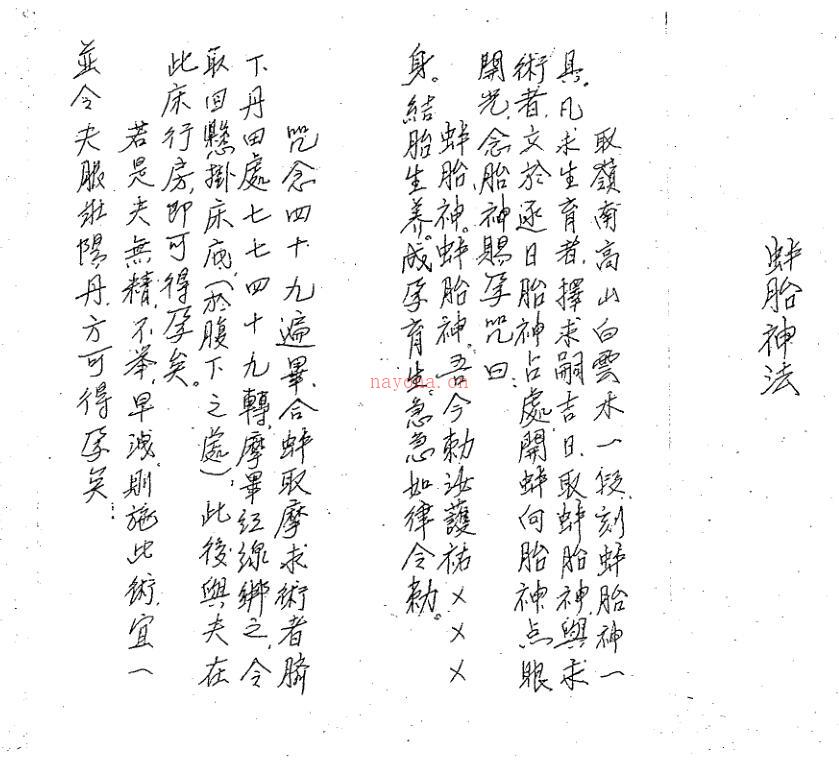 蚌胎神法
取嶺南高山白雲木一段,刻蚌胎神一
具。凡求生育者,擇求嗣吉日,取蚌胎神,與求
術者,交於逐日胎神占處,開蚌向胎神点眼
開光,念胎神賜孕咒曰:
蚌胎神。蚌胎神。吾今勅汝護祐×××
身。結胎生养。成孕育生。急急如律令勅。
咒念四十九遍畢,合蚌取摩求術者臍
下丹田處七七四十九轉,摩畢红線綁之,令
取回懸掛床底(於腹下之處),此後與夫在
此床行房,即可得孕矣。
若是夫無精,不举,早洩,則施此術,宜一
並令夫服壯陽丹,方可得孕矣
nayona.cn